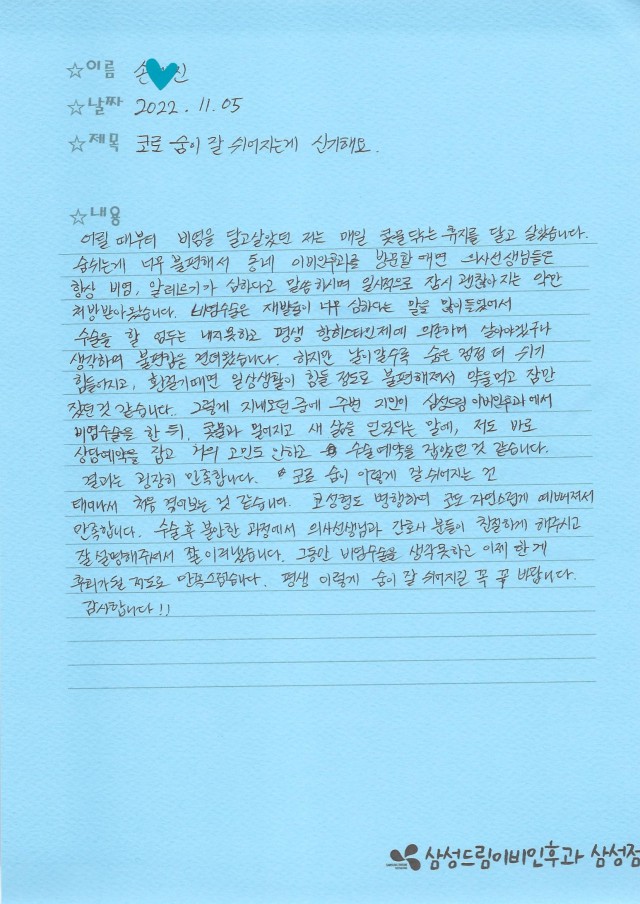 ☆이름 손 신
☆날짜 2022. 11. 05
☆제목 코로 숨이 잘 쉬어지는게 신기해요.
☆내용
어릴 때부터 비염을 달고살았던 저는 매일 콧물닦는 휴지를 달고 살았습니다.
숨쉬는게 너무 불편해서 동네 이비인후과를 방문할때면 의사선생님들은
항상 비염, 알레르기가 심하다고 말씀하시며 일시적으로 잠시 괜찮아지는 약만
처방받아왔습니다. 비염수술은 재발률이 너무 심하다는 말을 많이들었어서
수술을 할 엄두는 내지못하고 평생 항히스타민제에 의존하며 살아야겠구나
생각하며 불편함을 견뎌왔습니다. 하지만 날이갈수록 숨은 점점 더 쉬기
힘들어지고, 환절기때면 일상생활이 힘들 정도로 불편해져서 약들먹고 잠만
잤던것 같습니다. 그렇게 지내오던 중에 주변 지인이 삼성드림 이비인후과에서
비염수술을 한 뒤, 콧물과 멀어지고 새 삶을 얻었다는 말에, 저도 바로
상담예약을 잡고 거의 고민도 안하고 수술예약을 잡았던것 같습니다.
결과는 굉장히 만족합니다. 코로 숨이 이렇게 잘 쉬어지는 건
태어나서 처음 겪어보는 것 같습니다. 코성형도 병행하여 코도 자연스럽게 예뻐져서
만족합니다. 수술후 불안한 과정에서 의사선생님과 간호사 분들이 친절하게 해주시고
잘 설명해주셔서 잘 이겨냈습니다. 그동안 비염수술을 생각못하고 이제 한게
후회가될 정도로 만족스럽습니다. 평생 이렇게 숨이 잘 쉬어지길 꼭 꼭 바랍니다.
감사합니다!!
삼성드림이비인후과 삼성점